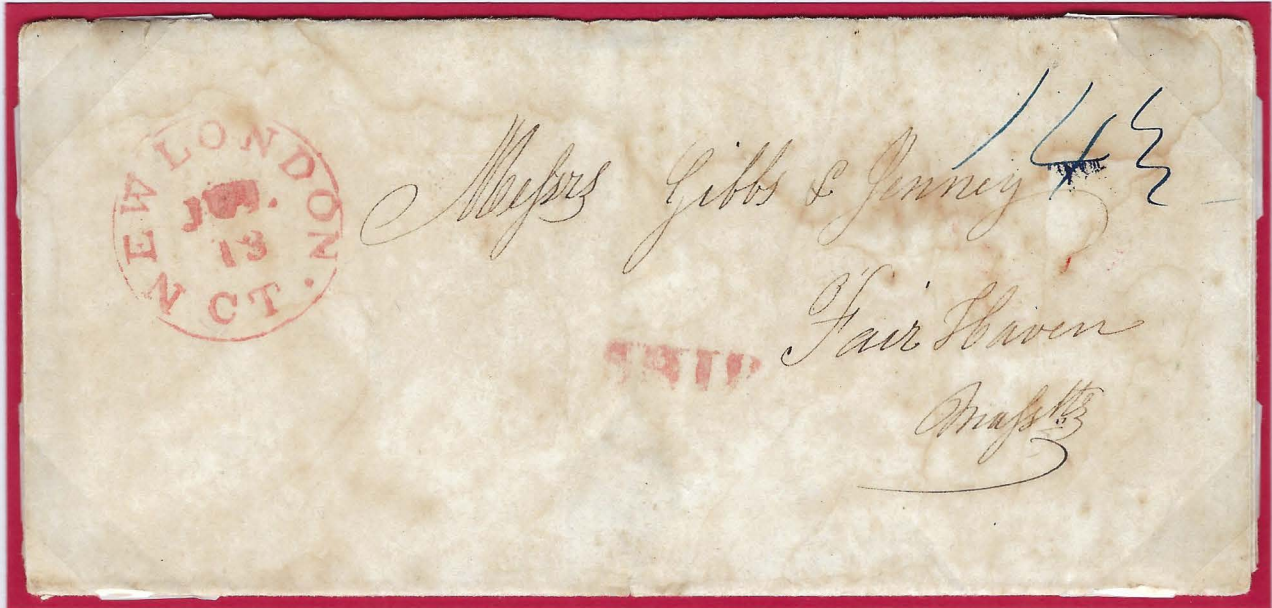 NEW LONDON CT.
13
14½
Messrs Gibbs & Jenney
SHIP
Fair Haven
Masstts